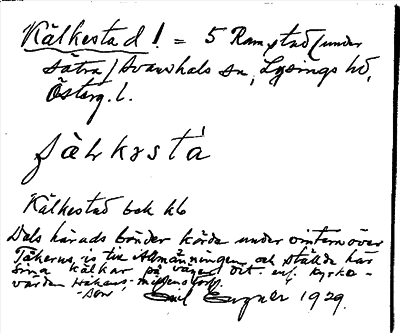 Kälkestad! = 5 Ramstad (under
Sätra/Svanshals sn, Lysings hd,
Österg. l.
Kälkestad bck kb
Dals härads bönder körde under vintern över
Tåkerns is till Allmänningen och ställde här
sina kälkar på vägen dit enl. kyrko-
värden Håkans-
Emil 1929.